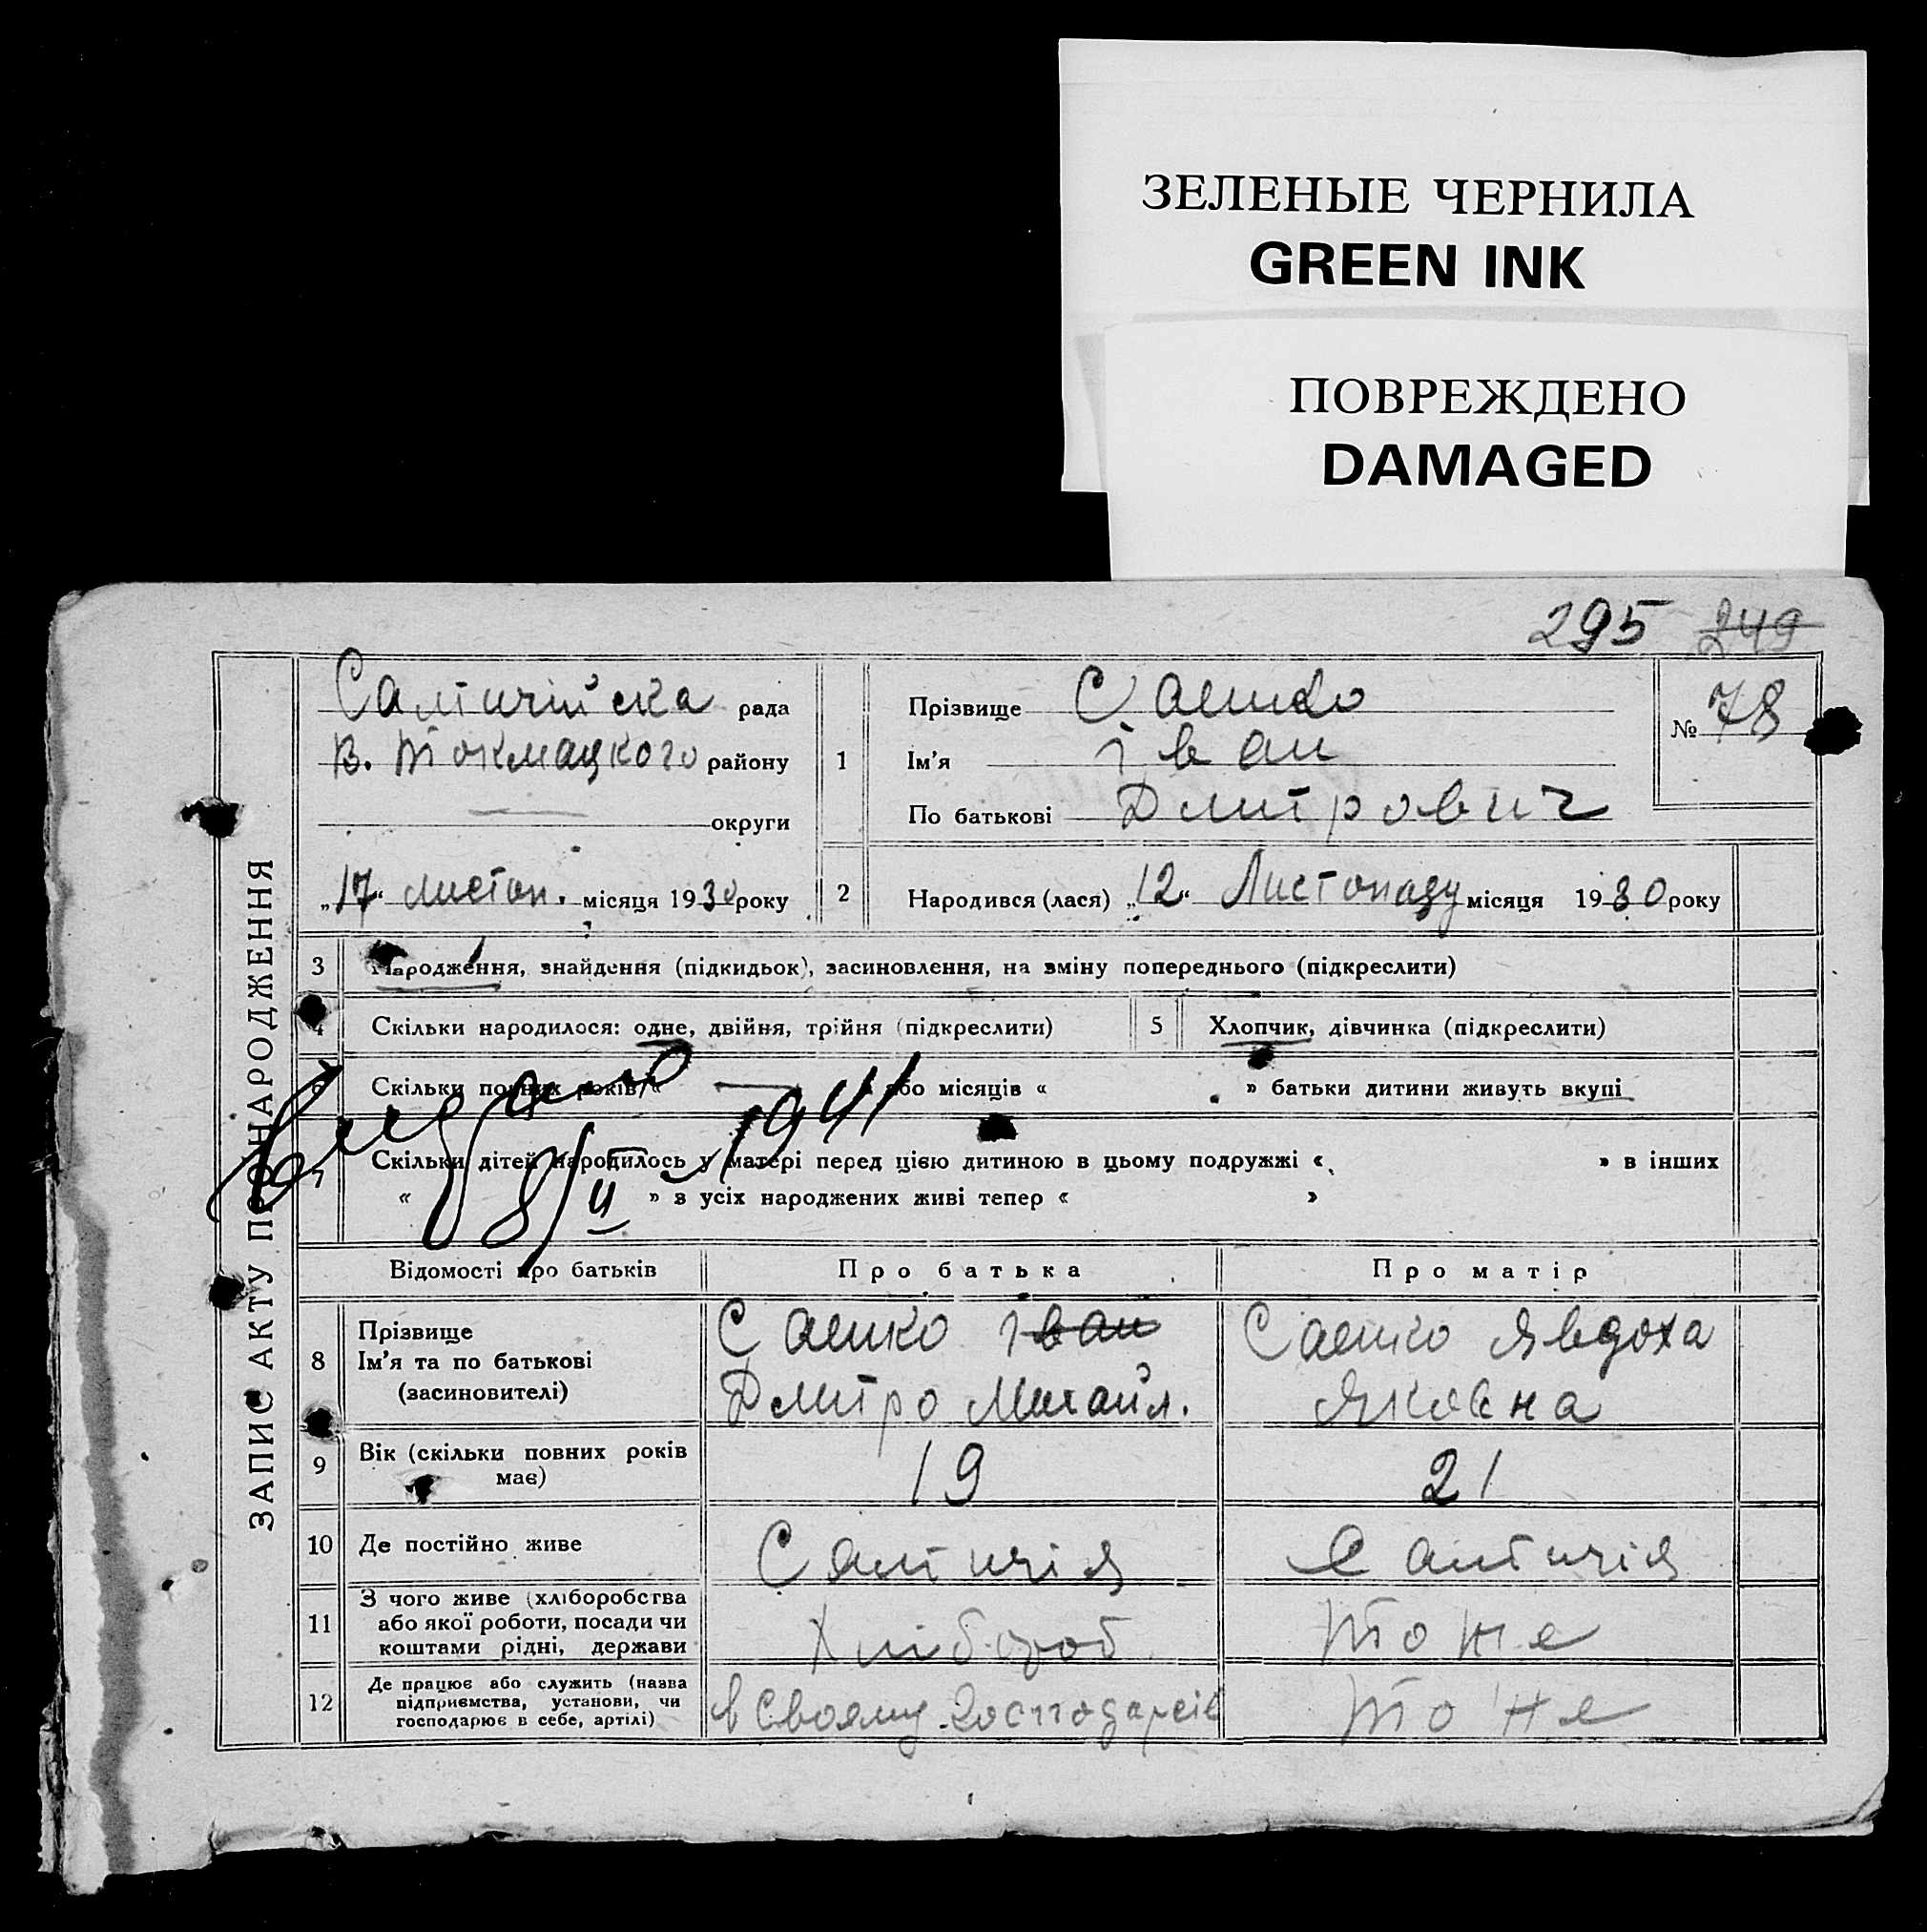 ЗЕЛЕНЫЕ ЧЕРНИЛА
GREEN INK
ПОВРЕЖДЕНО
DAMAGED
295 249
ЗАПИС АКТУ ПРО НАРОДЖЕННЯ
Салтичійска рада
В. Токмацкого району
округи
„17“ листоп. місяця 1930 року
1
Прізвище Саенко
Ім'я Іван
По батькові Дмитрович
№ 78
2 Народився (лася) „12“ Листопаду місяця 1930 року
3 Народження, знайдення (підкидьок), засиновлення, на зміну попереднього (підкреслити)
4 Скільки народилося: одне, двійня, трійня (підкреслити)
5 Хлопчик, дівчинка (підкреслити)
6 Скільки повних років « — » або місяців « » батьки дитини живуть вкупі
Видано 8/II 1941
7 Скільки дітей народилось у матері перед цією дитиною в цьому подружжі « » в інших
« » з усіх народжених живі тепер « »
Відомості про батьків Про батька Про матір
8 Прізвище
Ім'я та по батькові
(засиновителі)
Саенко Іван
Дмитро Михайл.
Саенко Явдоха
Яковна
9 Вік (скільки повних років
має)
19 21
10 Де постійно живе Салтичія Салтичія
11 З чого живе (хліборобства
або якої роботи, посади чи
коштами рідні, держави
Хлібороб Тоже
12 Де працює або служить (назва
підприємства, установи, чи
господарює в себе, артілі)
в свояму господарсів Тоже